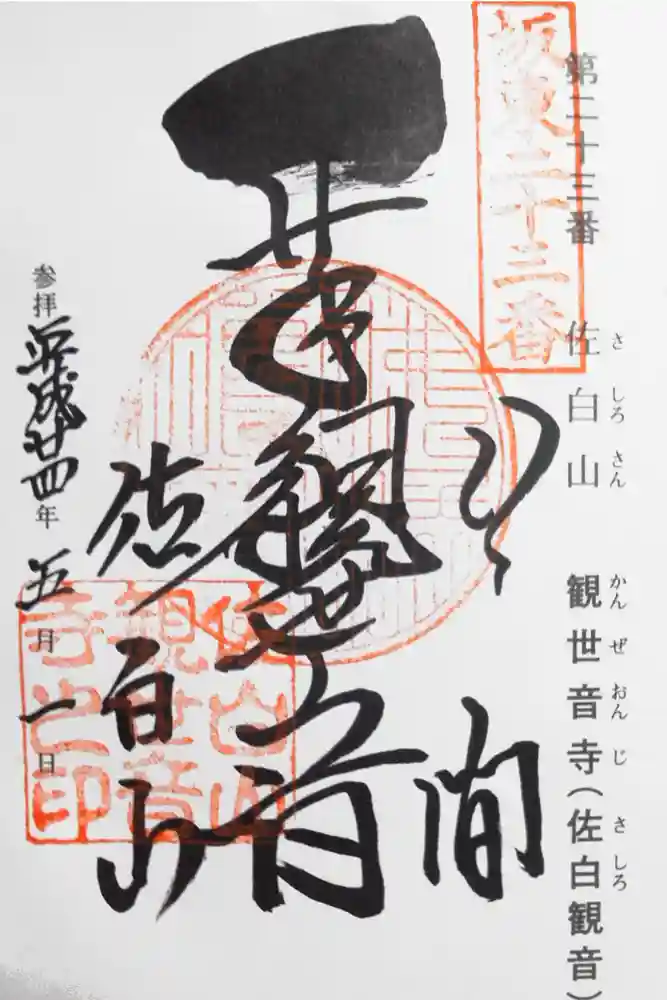 第二十三番 佐白山 観世音寺(佐白観音)
さしろさん かんぜおんじ さしろ
坂東二十三番
千手観世音
佐白山
参拝 平成廿四年五月一日
佐白山
観世音
寺之印